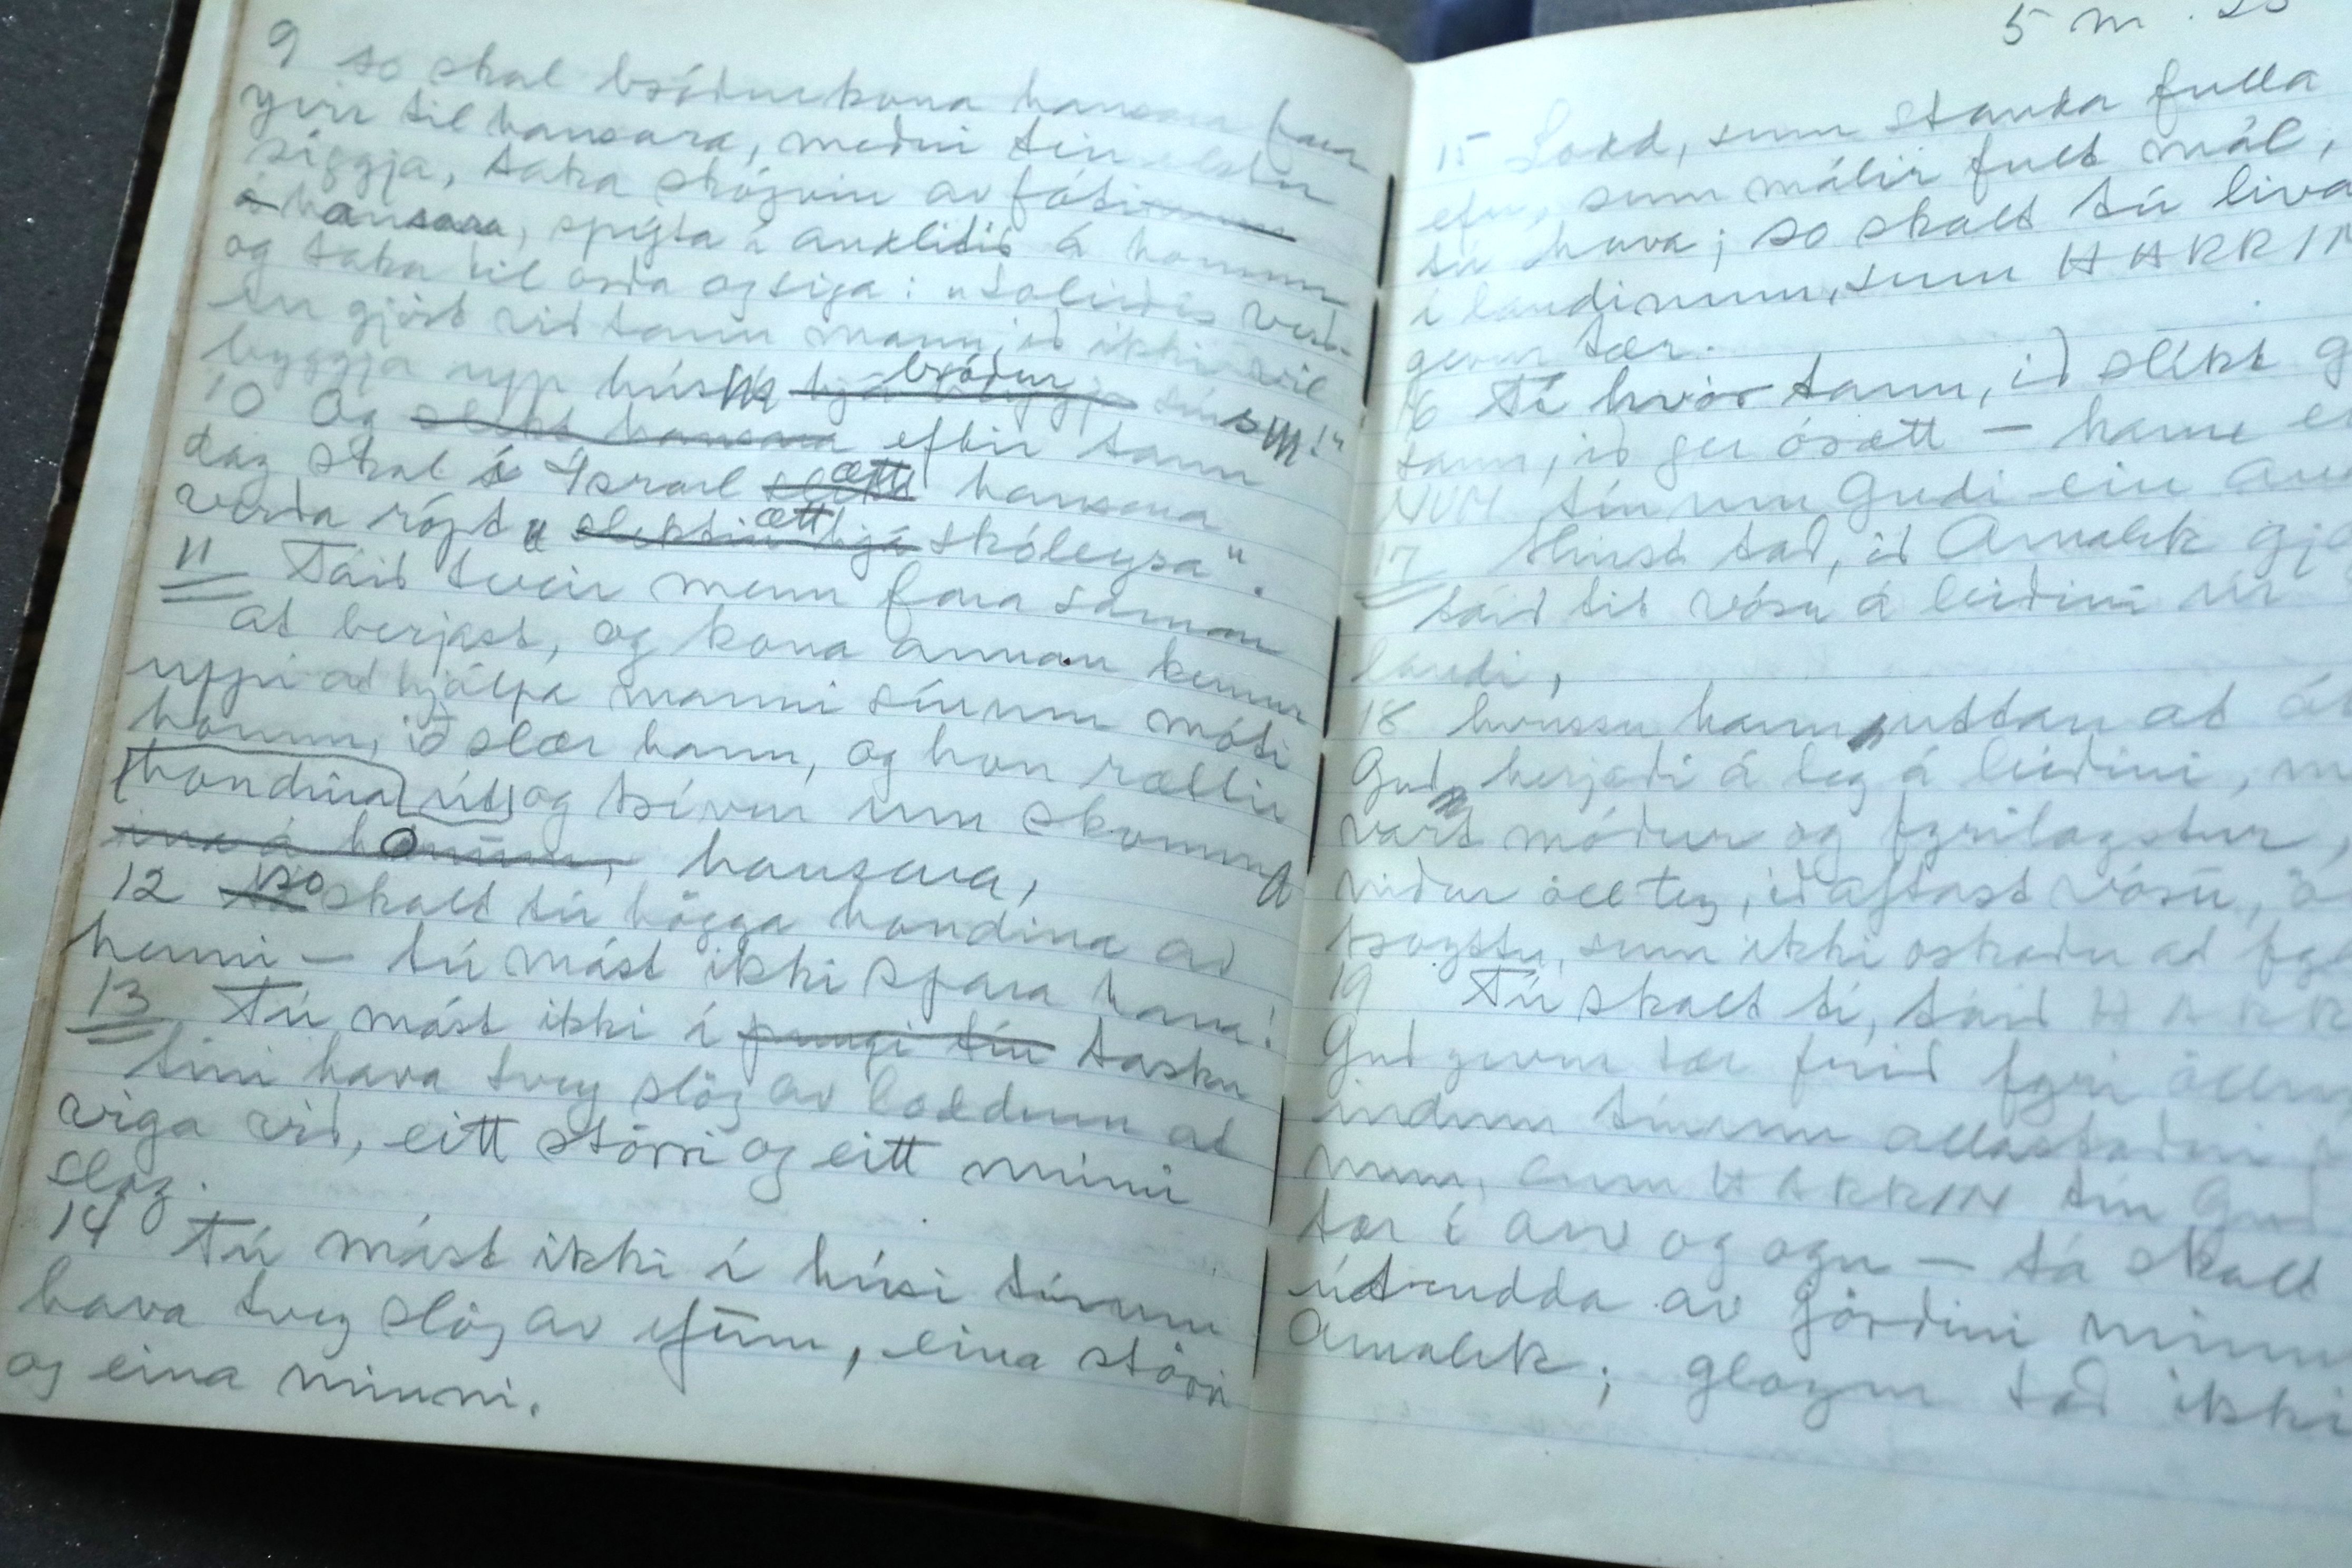 9 so skal bróðurkona hansara fara
yvir til hansara, meðni tein elstu
síggja, taka skógvin av fóti
á hansara, spýta í andlitið á honum
og taka til orða og siga: „Soleiðis verð-
ur gjört við tann mann, ið ikki vil
byggja upp hús bróður sín
10 Og slekt hansara eftir tann
dag skal í Ísrael ætt hansara
verða róypt „ætt skóleysa“.
11 Táið tveir menn fara saman
at berjast, og kona annan kemur
uppi at hjálpa manni sínum móti
honum, ið slær hann, og hon rættir
hondina út og trívur um skomm
ina á honum, hansara,
12 so skalt tú högga hondina av
henni — tú mást ikki spara hana!
13 Tú mást ikki í pungi tín tasku
tíni hava tvey slög av loddum at
viga við, eitt störri og eitt minni
slag.
14 Tú mást ikki í húsi tínum
hava tvey slög av efum, eina störri
og eina minni.
5 m. 25
15 Lodd, sum standa fulla
efu, sum málir fult mál,
tú hava; so skalt tú liva
í landinum, sum HARRIN
gevur tær.
16 Tí hvör tann, ið slíkt g
tann, ið ger órætt — hann er
NUM tínum Gudi ein an
17 Minst tað, ið Amalek gj
táið tit vóru á leiðini úr
landi,
18 hvussu hann, uttan at ót
Gud, herjaði á teg á leiðini, m
vart móður og fyrilagstur,
niður öll tey, ið aftast vóru,
troyttu, sum ikki orkaðu at fyl
19 Tú skalt tí, táið HARR
Gud gevur tær frið fyri öllum
indum tínum allastaðni
num, sum HARRIN tín Gud
tær í arv og ogn — tá skalt
útrudda av jörðini minni
Amalek; gloym tað ikki